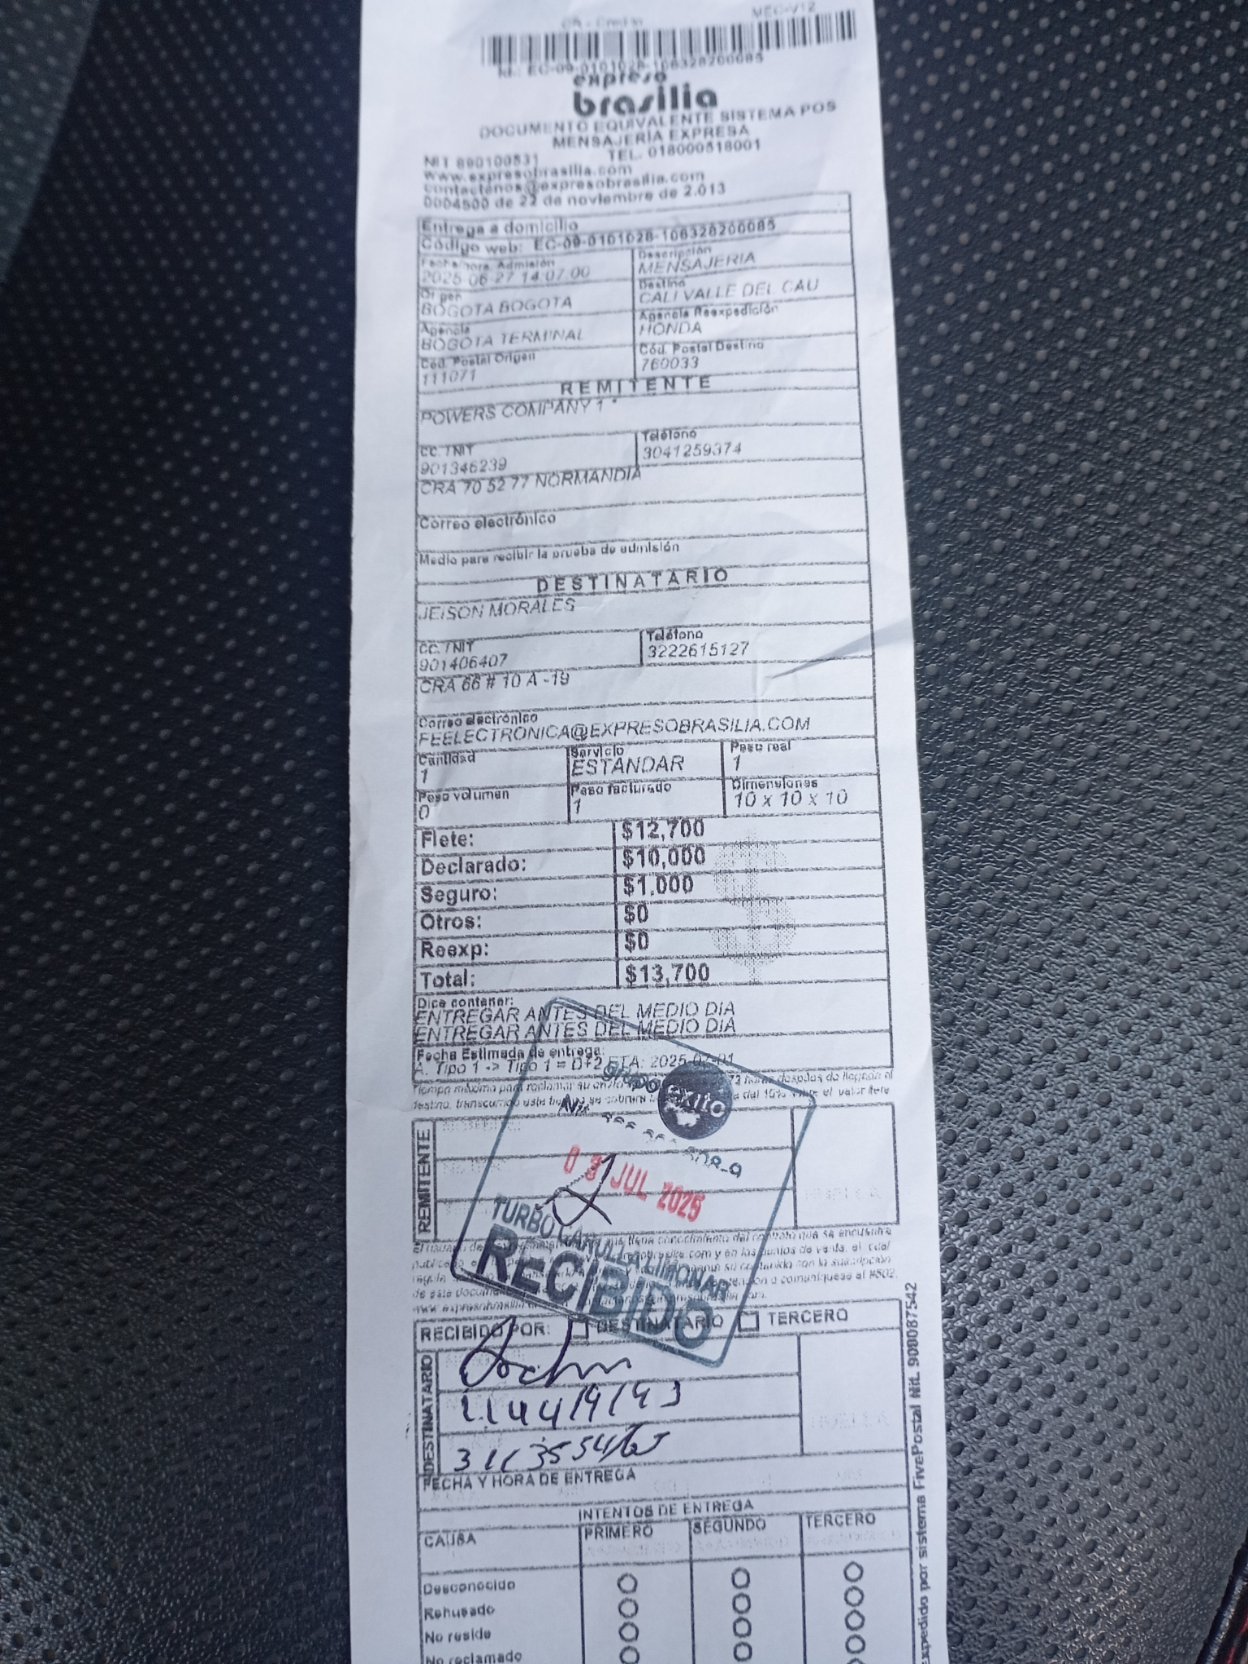 CR - Credito MEC-V12
N.: EC-09-0101028-106328200085
expreso
brasilia
DOCUMENTO EQUIVALENTE SISTEMA POS
MENSAJERIA EXPRESA
NIT 890100531 TEL. 018000518001
www.expresobrasilia.com
contactenos@expresobrasilia.com
0004500 de 22 de noviembre de 2.013
Entrega a domicilio
Código web: EC-09-0101028-106328200085
Fecha hora Admisión Descripción
2025-06-27 14:07:00 MENSAJERIA
Origen Destino
BOGOTA BOGOTA CALI VALLE DEL CAU
Agencia Agencia Reexpedición
BOGOTA TERMINAL HONDA
Cód. Postal Origen Cód. Postal Destino
111071 760033
REMITENTE
POWERS COMPANY 1 *
CC. / NIT Teléfono
901346239 3041259374
CRA 70 52 77 NORMANDIA
Correo electrónico
Medio para recibir la prueba de admisión
DESTINATARIO
JEISON MORALES
CC. / NIT Teléfono
901406407 3222615127
CRA 66 # 10 A -19
Correo electrónico
FEELECTRONICA@EXPRESOBRASILIA.COM
Cantidad Servicio Peso real
1 ESTANDAR 1
Peso volumen Peso facturado Dimensiones
0 1 10 x 10 x 10
Flete: $12,700
Declarado: $10,000
Seguro: $1,000
Otros: $0
Reexp: $0
Total: $13,700
Dice contener:
ENTREGAR ANTES DEL MEDIO DIA
ENTREGAR ANTES DEL MEDIO DIA
Fecha Estimada de entrega:
A. Tipo 1 -> Tipo 1 = D+2 ETA: 2025-07-01
grupo éxito
JUL 2025
TURBO CARULLA LIMONAR
RECIBIDO
REMITENTE
RECIBIDO POR: DESTINATARIO TERCERO
DESTINATARIO
FECHA Y HORA DE ENTREGA
INTENTOS DE ENTREGA
CAUSA PRIMERO SEGUNDO TERCERO
Desconocido
Rehusado
No reside
No reclamado
Expedido por sistema FivePostal Nit. 900087542